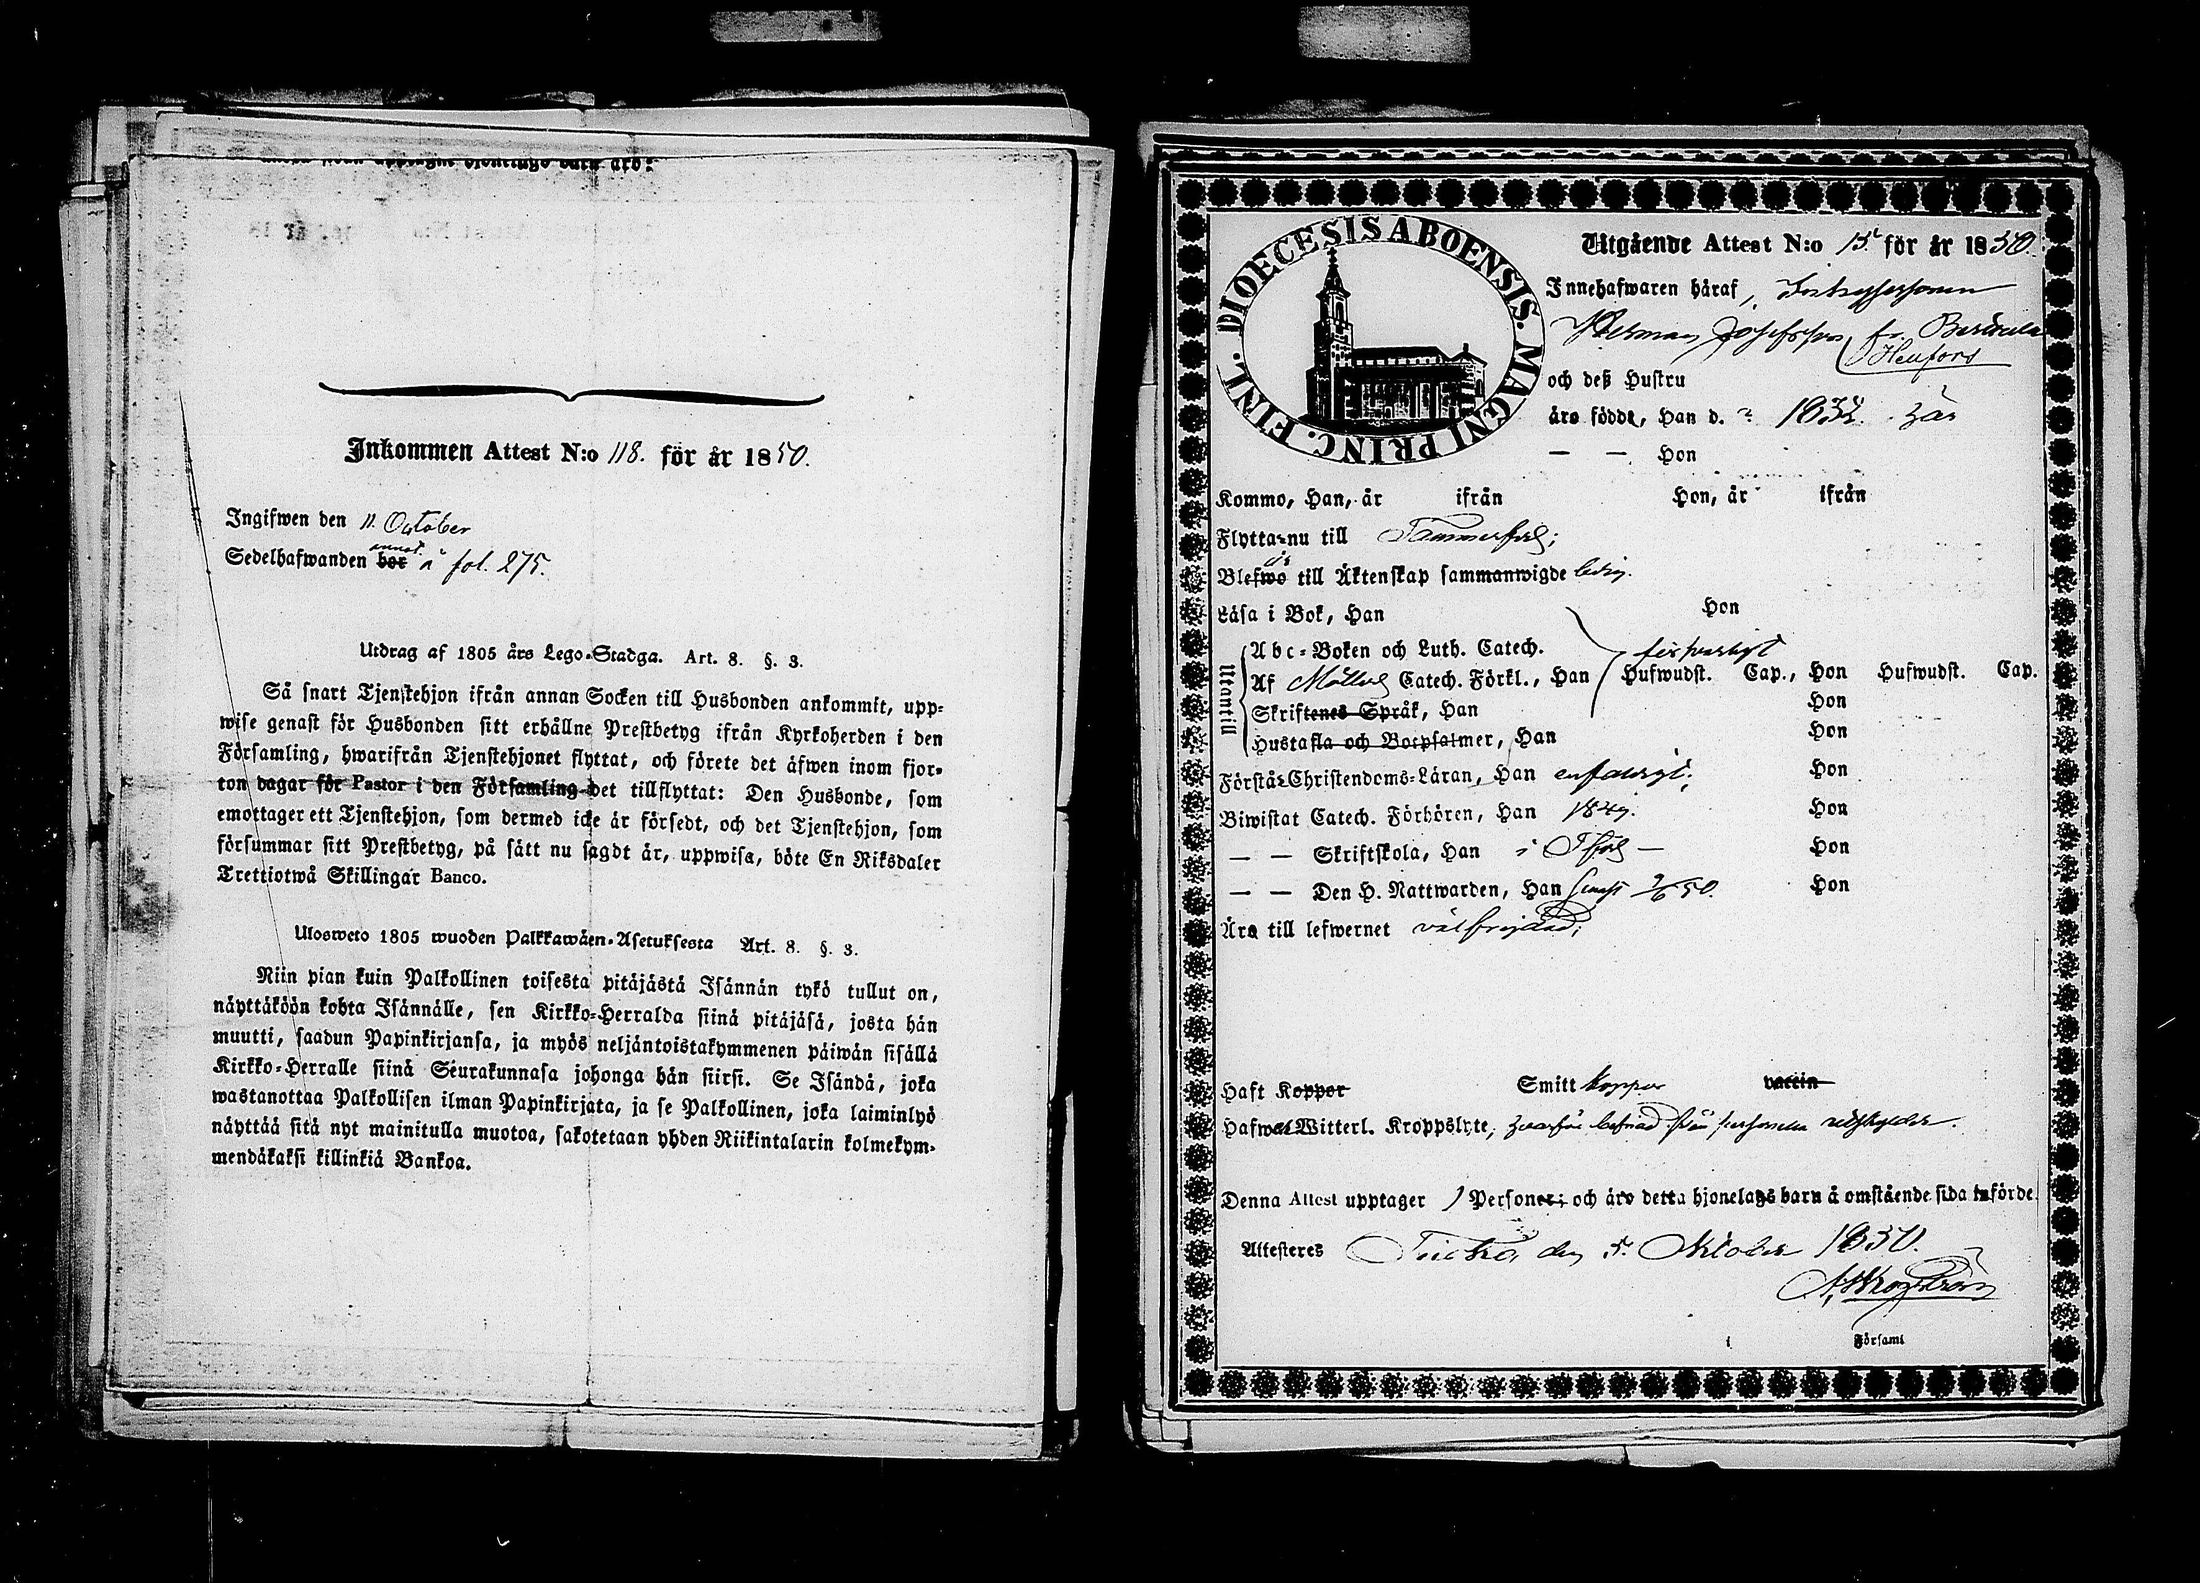 Inkommen Attest N:o 118. för år 1850.
Ingifwen den 11. October
annot.
Sedelhafwanden bor å fol. 275.
Utdrag af 1805 års Lego-Stadga. Art. 8. §. 3.
Så snart Tjenstehjon ifrån annan Socken till Husbonden ankommit, upp-
wise genast för Husbonden sitt erhållne Prestbetyg ifrån Kyrkoherden i den
Församling, hwarifrån Tjenstehjonet flyttat, och förete det äfwen inom fjor-
ton dagar för Pastor i den Församling det tillflyttat: Den Husbonde, som
emottager ett Tjenstehjon, som dermed icke är försedt, och det Tjenstehjon, som
försummar sitt Prestbetyg, på sätt nu sagdt är, uppwisa, böte En Riksdaler
Trettiotwå Skillingar Banco.
Ulosweto 1805 wuoden Palkkawäen-Asetuksesta Art. 8. §. 3.
Niin pian kuin Palkollinen toisesta pitäjästä Isännän tykö tullut on,
näyttäköön kohta Isännälle, sen Kirkko-Herralda siinä pitäjäsä, josta hän
muutti, saadun Papinkirjansa, ja myös neljäntoistakymmenen päiwän sisällä
Kirkko-Herralle siinä Seurakunnasa johonga hän siirsi. Se Isändä, joka
wastanottaa Palkollisen ilman Papinkirjata, ja se Palkollinen, joka laiminlyö
näyttää sitä nyt mainitulla muotoa, sakotetaan yhden Riikintalarin kolmekym-
mendäkaksi killinkiä Bankoa.
DIOECESIS ABOENSIS. MAGNI PRINC. FINL.
Utgående Attest N:o 15. för år 1850.
Innehafwaren häraf,
Herman Josefsson fr.
Heufors
och deß Hustru
äro födde, Han d. 1832.
— — Hon
Kommo, Han, år ifrån Hon, år ifrån
Flytta nu till Tammerfors;
är
Blefwo till Äktenskap sammanwigde ledig.
Läsa i Bok, Han Hon
Utantill
Abc-Boken och Luth. Catech. försvarligt
Af Möllers Catech. Förkl., Han Hufwudst. Cap., Hon Hufwudst. Cap.
Skriftenes Språk, Han Hon
Hustafla och Botpsalmer, Han Hon
Förstå Christendoms-Läran, Han enfaldigt; Hon
Biwistat Catech. Förhören, Han 1849. Hon
— — Skriftskola, Han i T fors — Hon
— — Den H. Nattwarden, Han senast 50. Hon
Äro till lefwernet välfrejdad;
Haft Koppor Smitt koppor vaccin
Hafwa Witterl. Kroppslyte,
Denna Attest upptager 1 Personer; och äro detta hjonelags barn å omstående sida införde.
Attesteres den 5. Oktober 1850.
i Församl